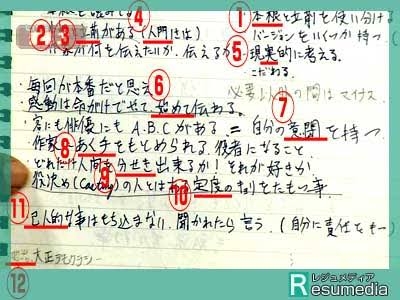 ① 本根と立前を使い分ける
②③ 立前がある(人門きは) ④
バージョンをいくつか持つ
作家が何を伝えたいか、伝えるか ⑤ 現実的に考える。
こだわる。
毎回が本番だと思え ⑥
必要以外の間はマイナス
感動は命がけでやって、始めて伝わる。 ⑦
客にも俳優にもA.B.Cがある = 自分の意間を持つ
作家 ⑧ あく手をもとめられる役者になること
どれだけ人間を分せき出来るか!それが好きか
役決め(Casting)の人とはある ⑨ ⑩ 定度のきょりをたもつ事
⑪ 己人的な事はもち込まない。聞かれたら言う。(自分に責任をもつ)
大正デモクラシー
⑫
レジュメディア
Resumedia